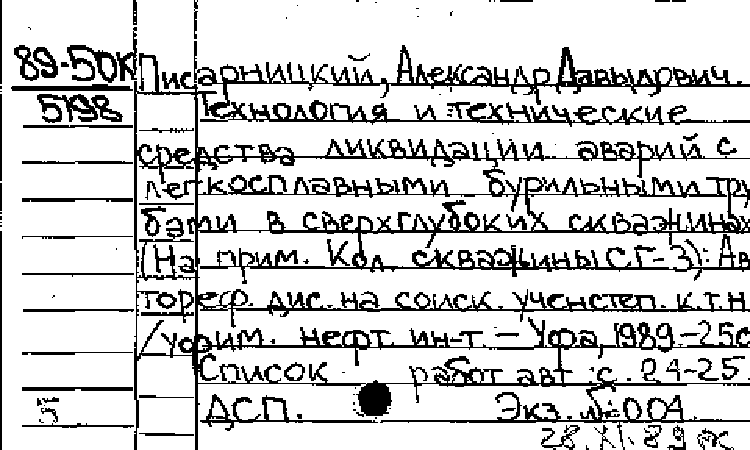 89-50К Писарницкий, Александр Давыдович.
5198 Технология и технические
средства ликвидации аварий с
легкосплавными бурильными тру
бами в сверхглубоких скважинах
(На прим. Кол. скважины СГ-3): Ав
тореф. дис. на соиск. учен степ. к.т.н
/Уфим. нефт. ин-т. — Уфа, 1989.-25с
Список работ авт. с. 24-25.
5 ДСП. Экз. №004.
28.XI.89